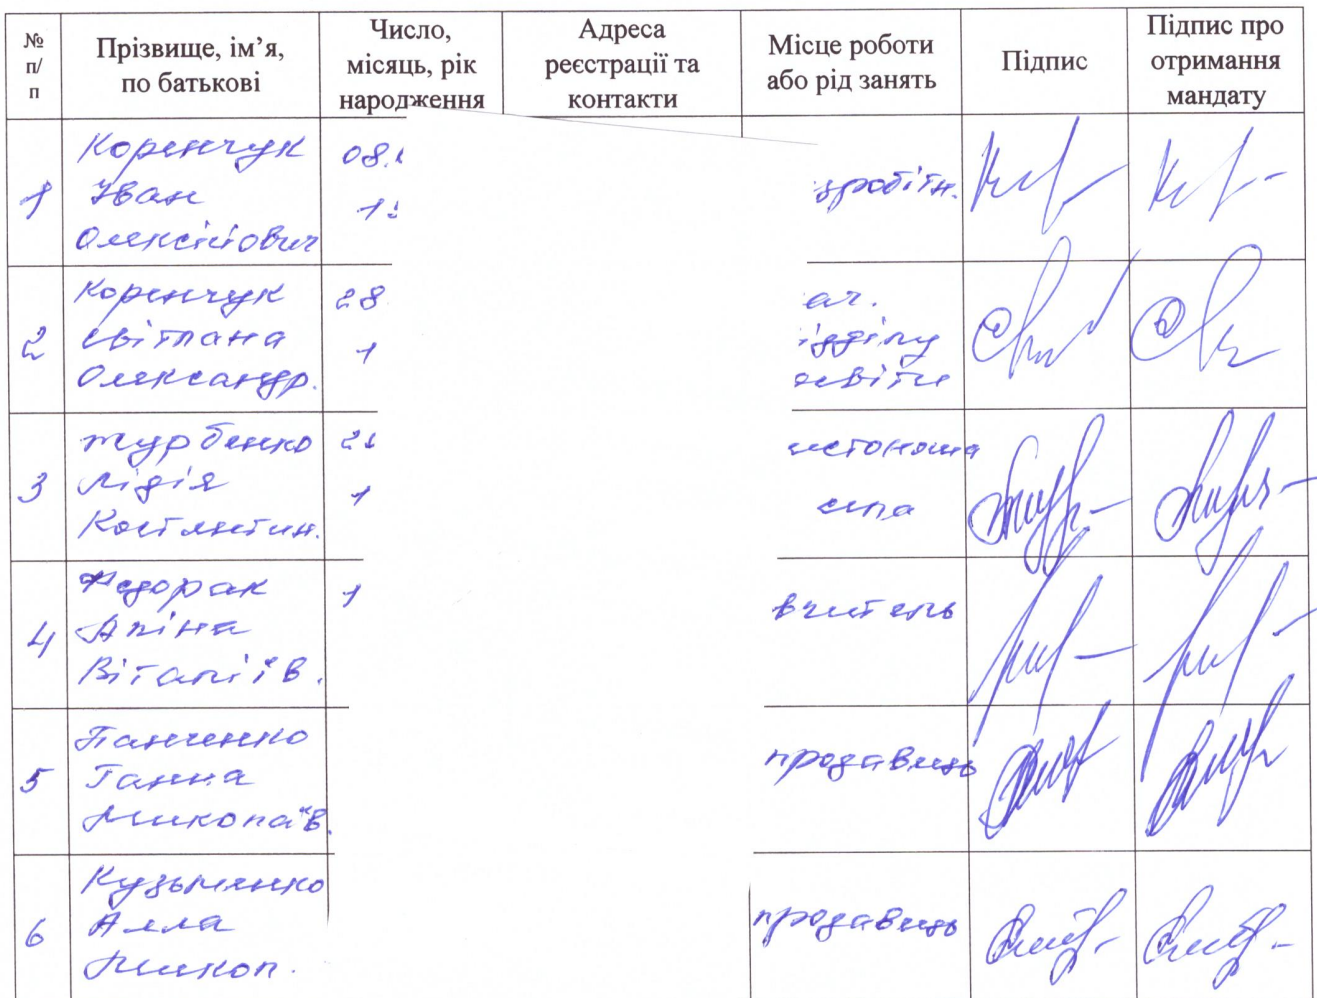 № п/п
Прізвище, ім’я, по батькові
Число, місяць, рік народження
Адреса реєстрації та контакти
Місце роботи або рід занять
Підпис
Підпис про отримання мандату
1
Коренчук
Іван
Олексійович
08.
1
зробітн.
2
Коренчук
Світлана
Олександр.
28
1
ач.
ідділу
освіти
3
Журбенко
Лідія
Костянтин.
2
1
истоноша
села
4
Федорак
Аліна
Віталіїв.
1
вчитель
5
Панченко
Ганна
Миколаїв.
продавець
6
Кузьменко
Алла
Микол.
продавець